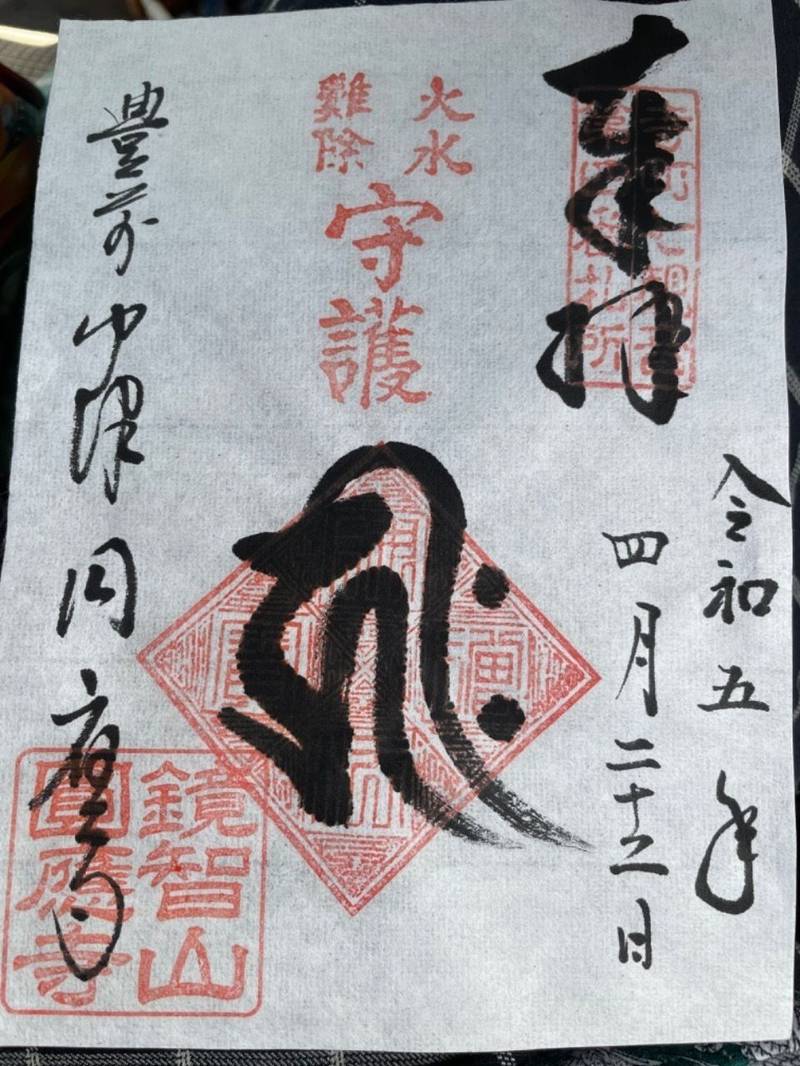 奉拝
令和五年
四月二十三日
火水
難除
守護
豊前中津円應寺
鏡智山
圓應寺